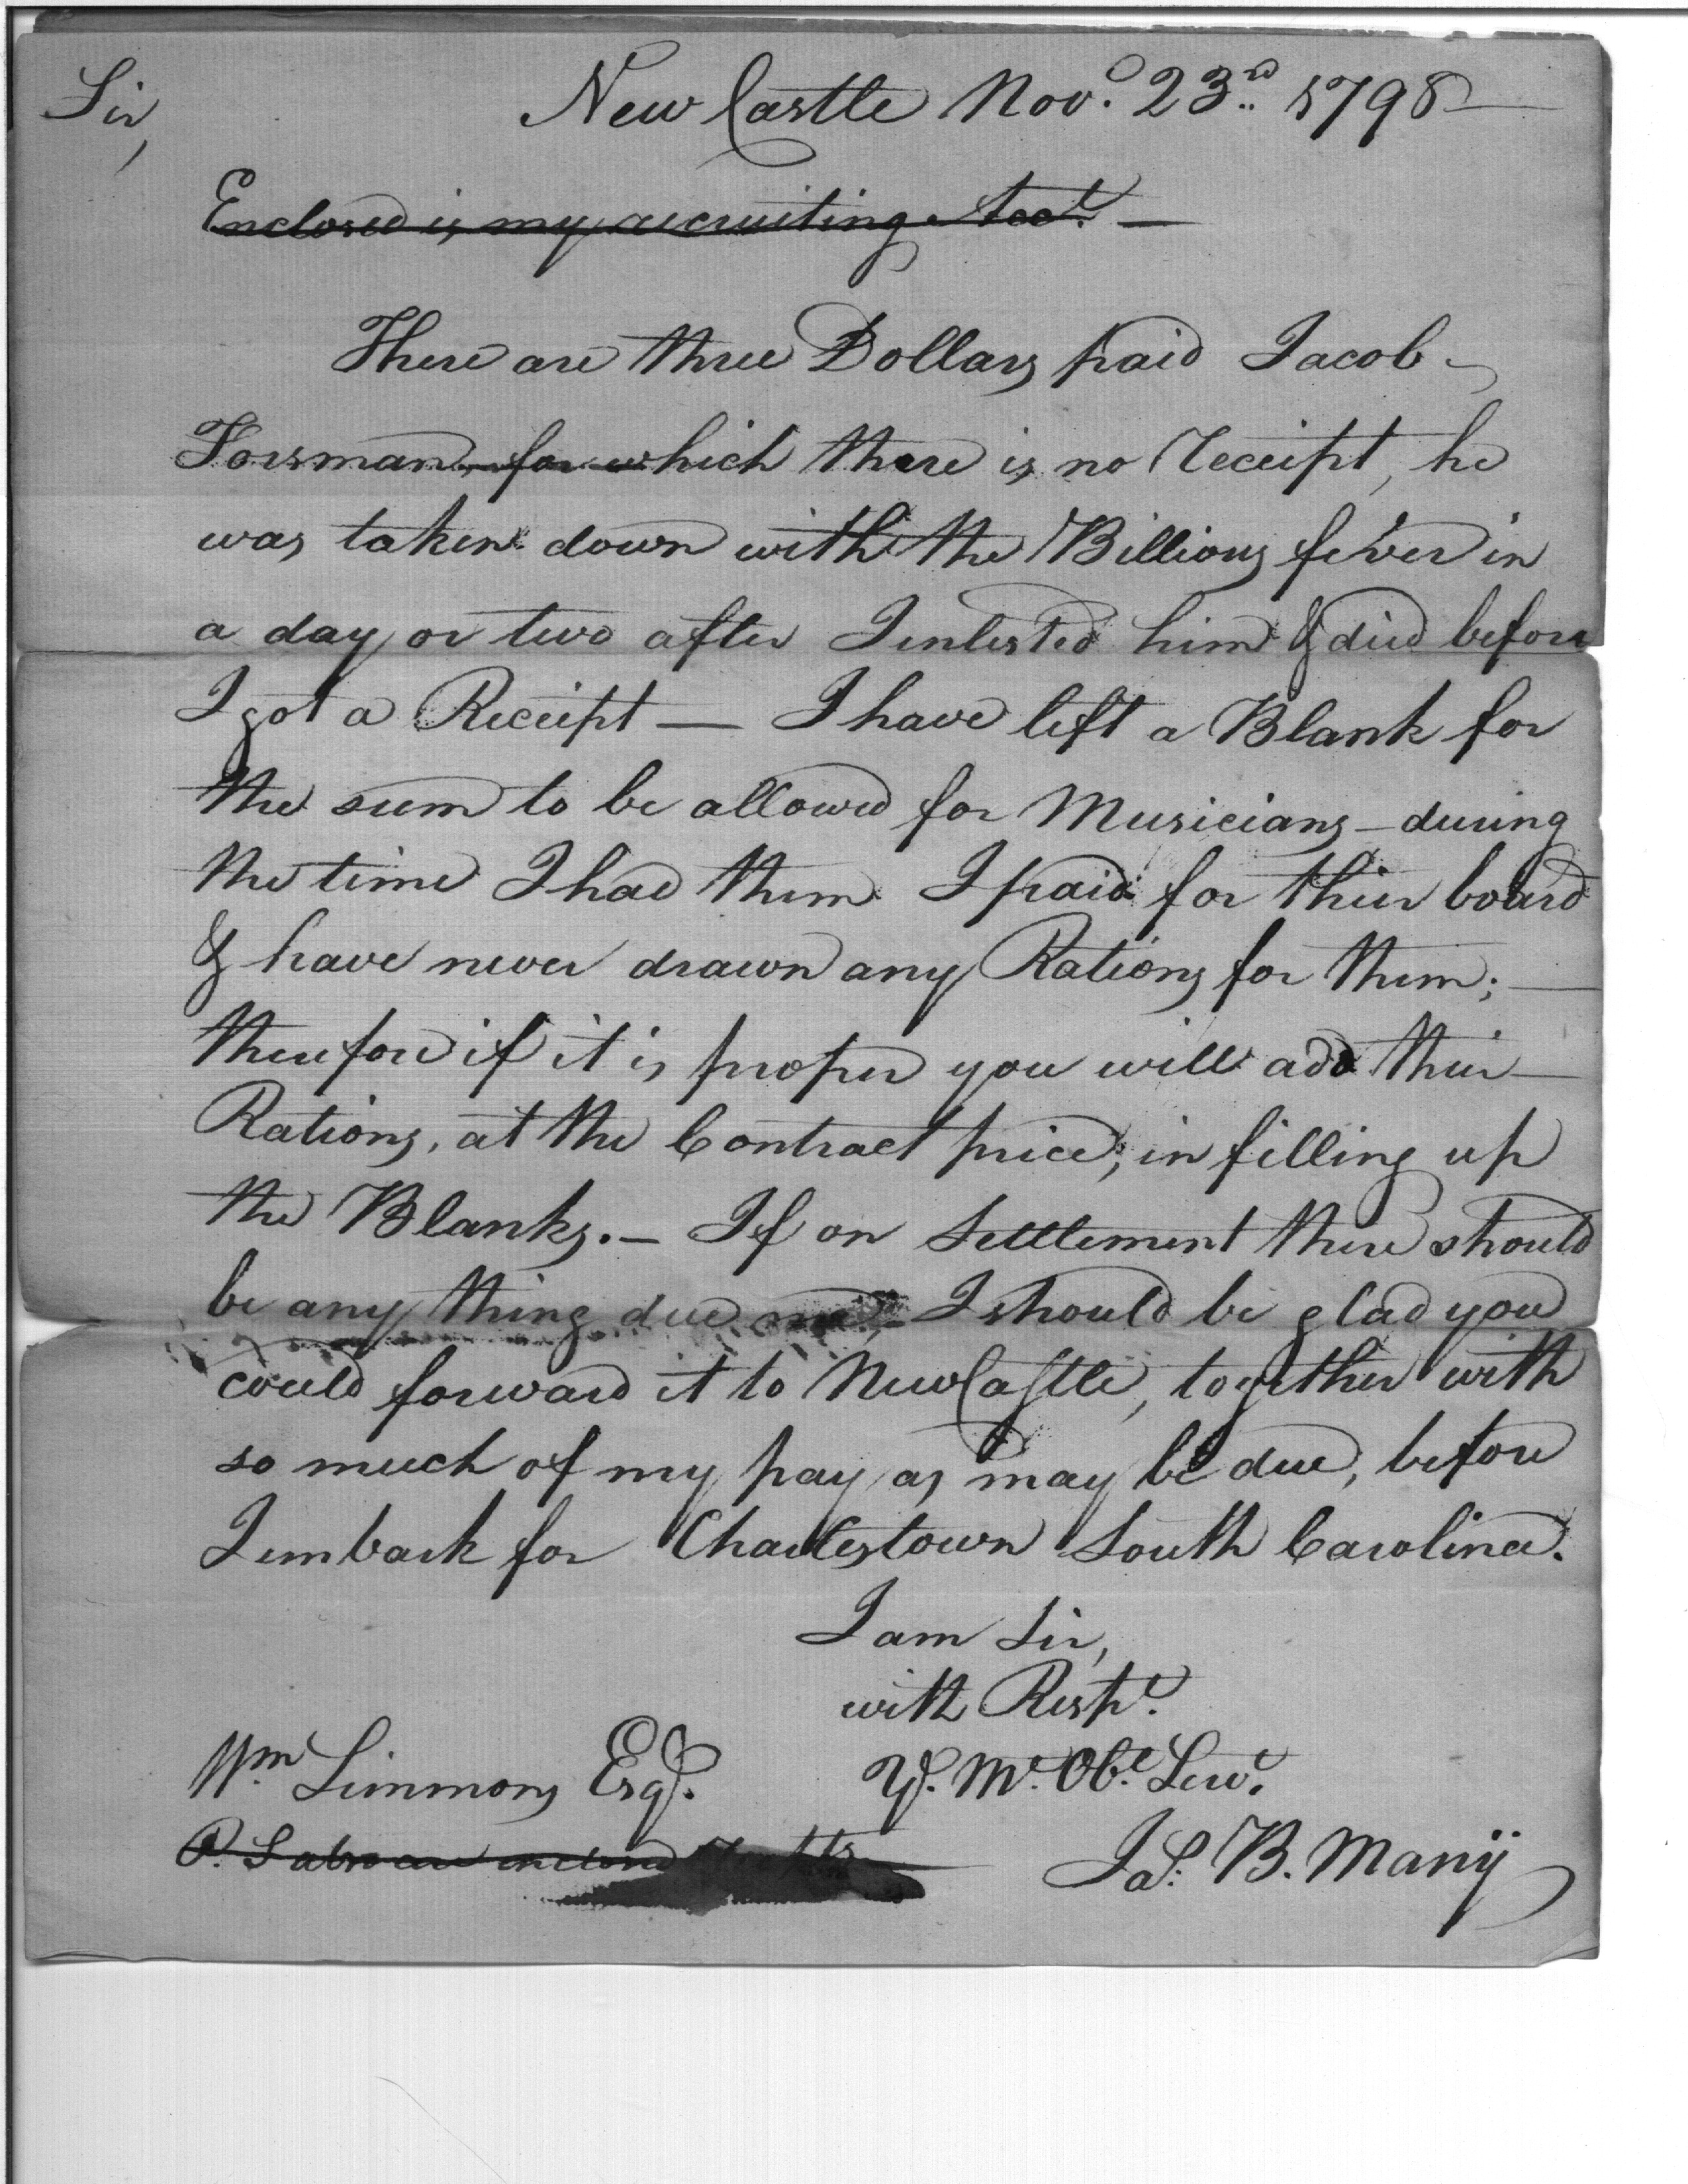 Sir, New Castle Nov.r 23rd 1798
Enclosed is my recruiting Acct. —
There are three Dollars paid Jacob
Forsman, for which there is no Receipt, he
was taken down with the Billious fever in
a day or two after I enlested him & died before
I got a Receipt — I have left a Blank for
the sum to be allowed for Musicians — during
the time I had them I paid for thier board
& have never drawn any Rations for them; —
therefore if it is proper you will add thier —
Rations, at the Contract price; in filling up
the Blanks. — If on Settlement there should
be any thing due me, I should be glad you
could forward it to NewCastle, together with
so much of my pay as may be due, before
I embark for Charlestown South Carolina.
I am Sir,
with Respt.
Wm Simmons Esqr. Yr. Mt. Obt. Servt.
P. S also are enclosed
Jas. B. Many